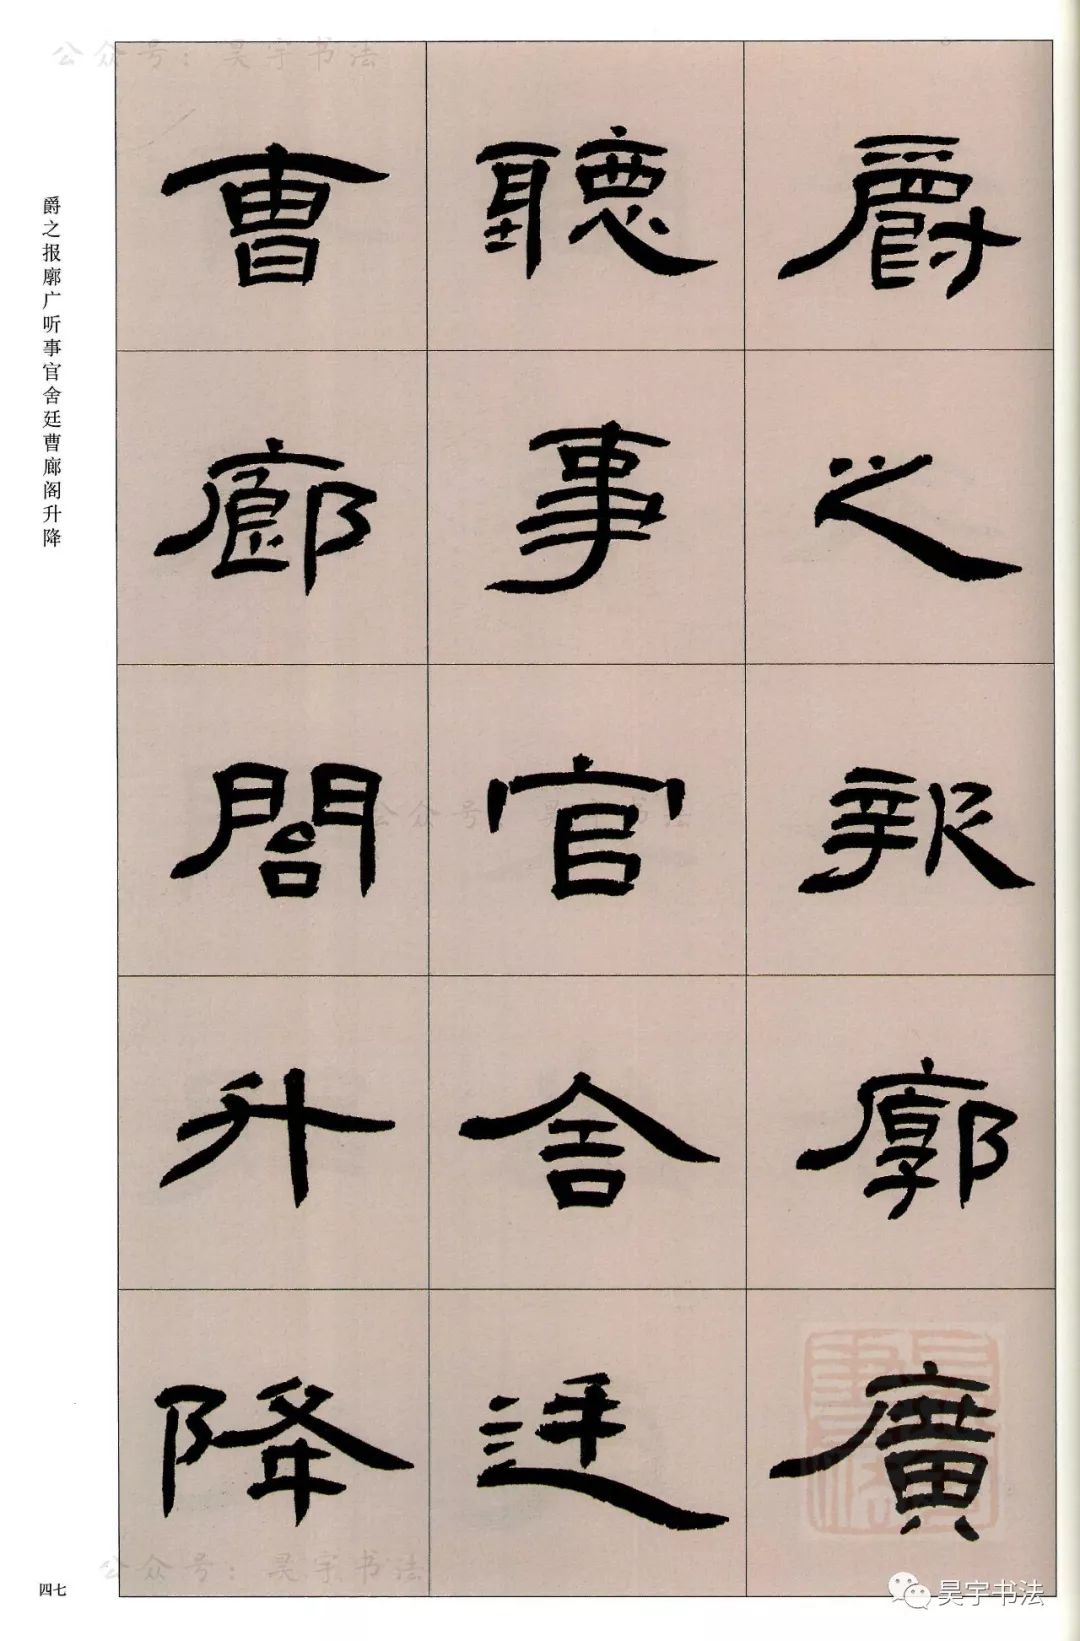 爵之報廓廣
聽事官舍廷
曹廊閣升降
爵之报廓广听事官舍廷曹廊阁升降
四七
公众号：昊宇书法
公众号：昊宇书法
公众号：昊宇书法
昊宇书法